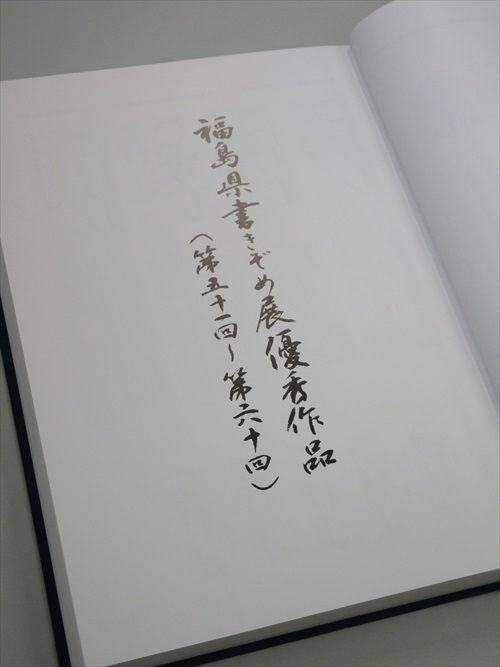 福島県書きぞめ展優秀作品
（第五十一回～第六十回）